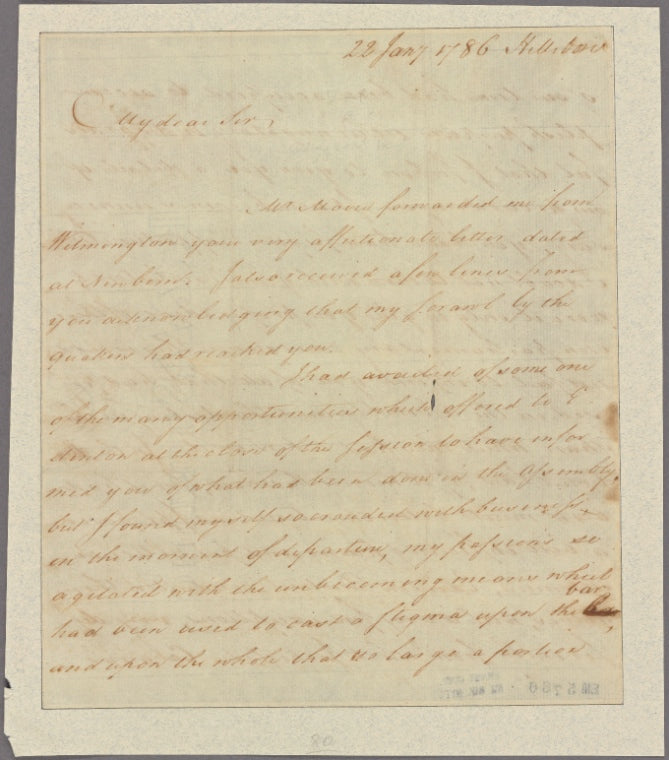 22 Jany 1786 Hillsboro
My dear Sir,
Mr. Moore forwarded me from
Wilmington your very affectionate letter dated
at Newbern. I also received a few lines from
you acknowledging that my scrawl by the
quakers had reached you.
I had availed of some one
of the many opportunities which offered to E
denton at the close of the Session to have infor
med you of what had been done in the Assembly,
but I found myself so crouded with business
in the moment of departure, my passions so
agitated with the unbecoming means which
had been used to cast a stigma upon the bar,
and upon the whole that so large a portion
EM 5760
80